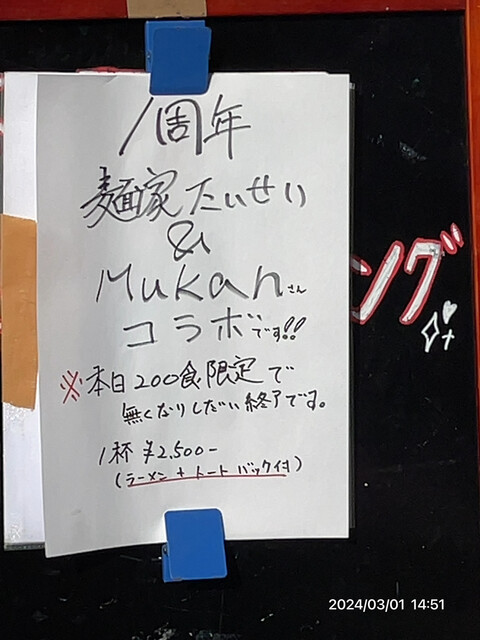 1周年
麺家たいせい
&
Mukanさん
コラボです!!
※本日200食限定で
無くなりしだい終了です。
1杯 ¥2,500-
(ラーメン+トートバック付)
ング
2024/03/01 14:51